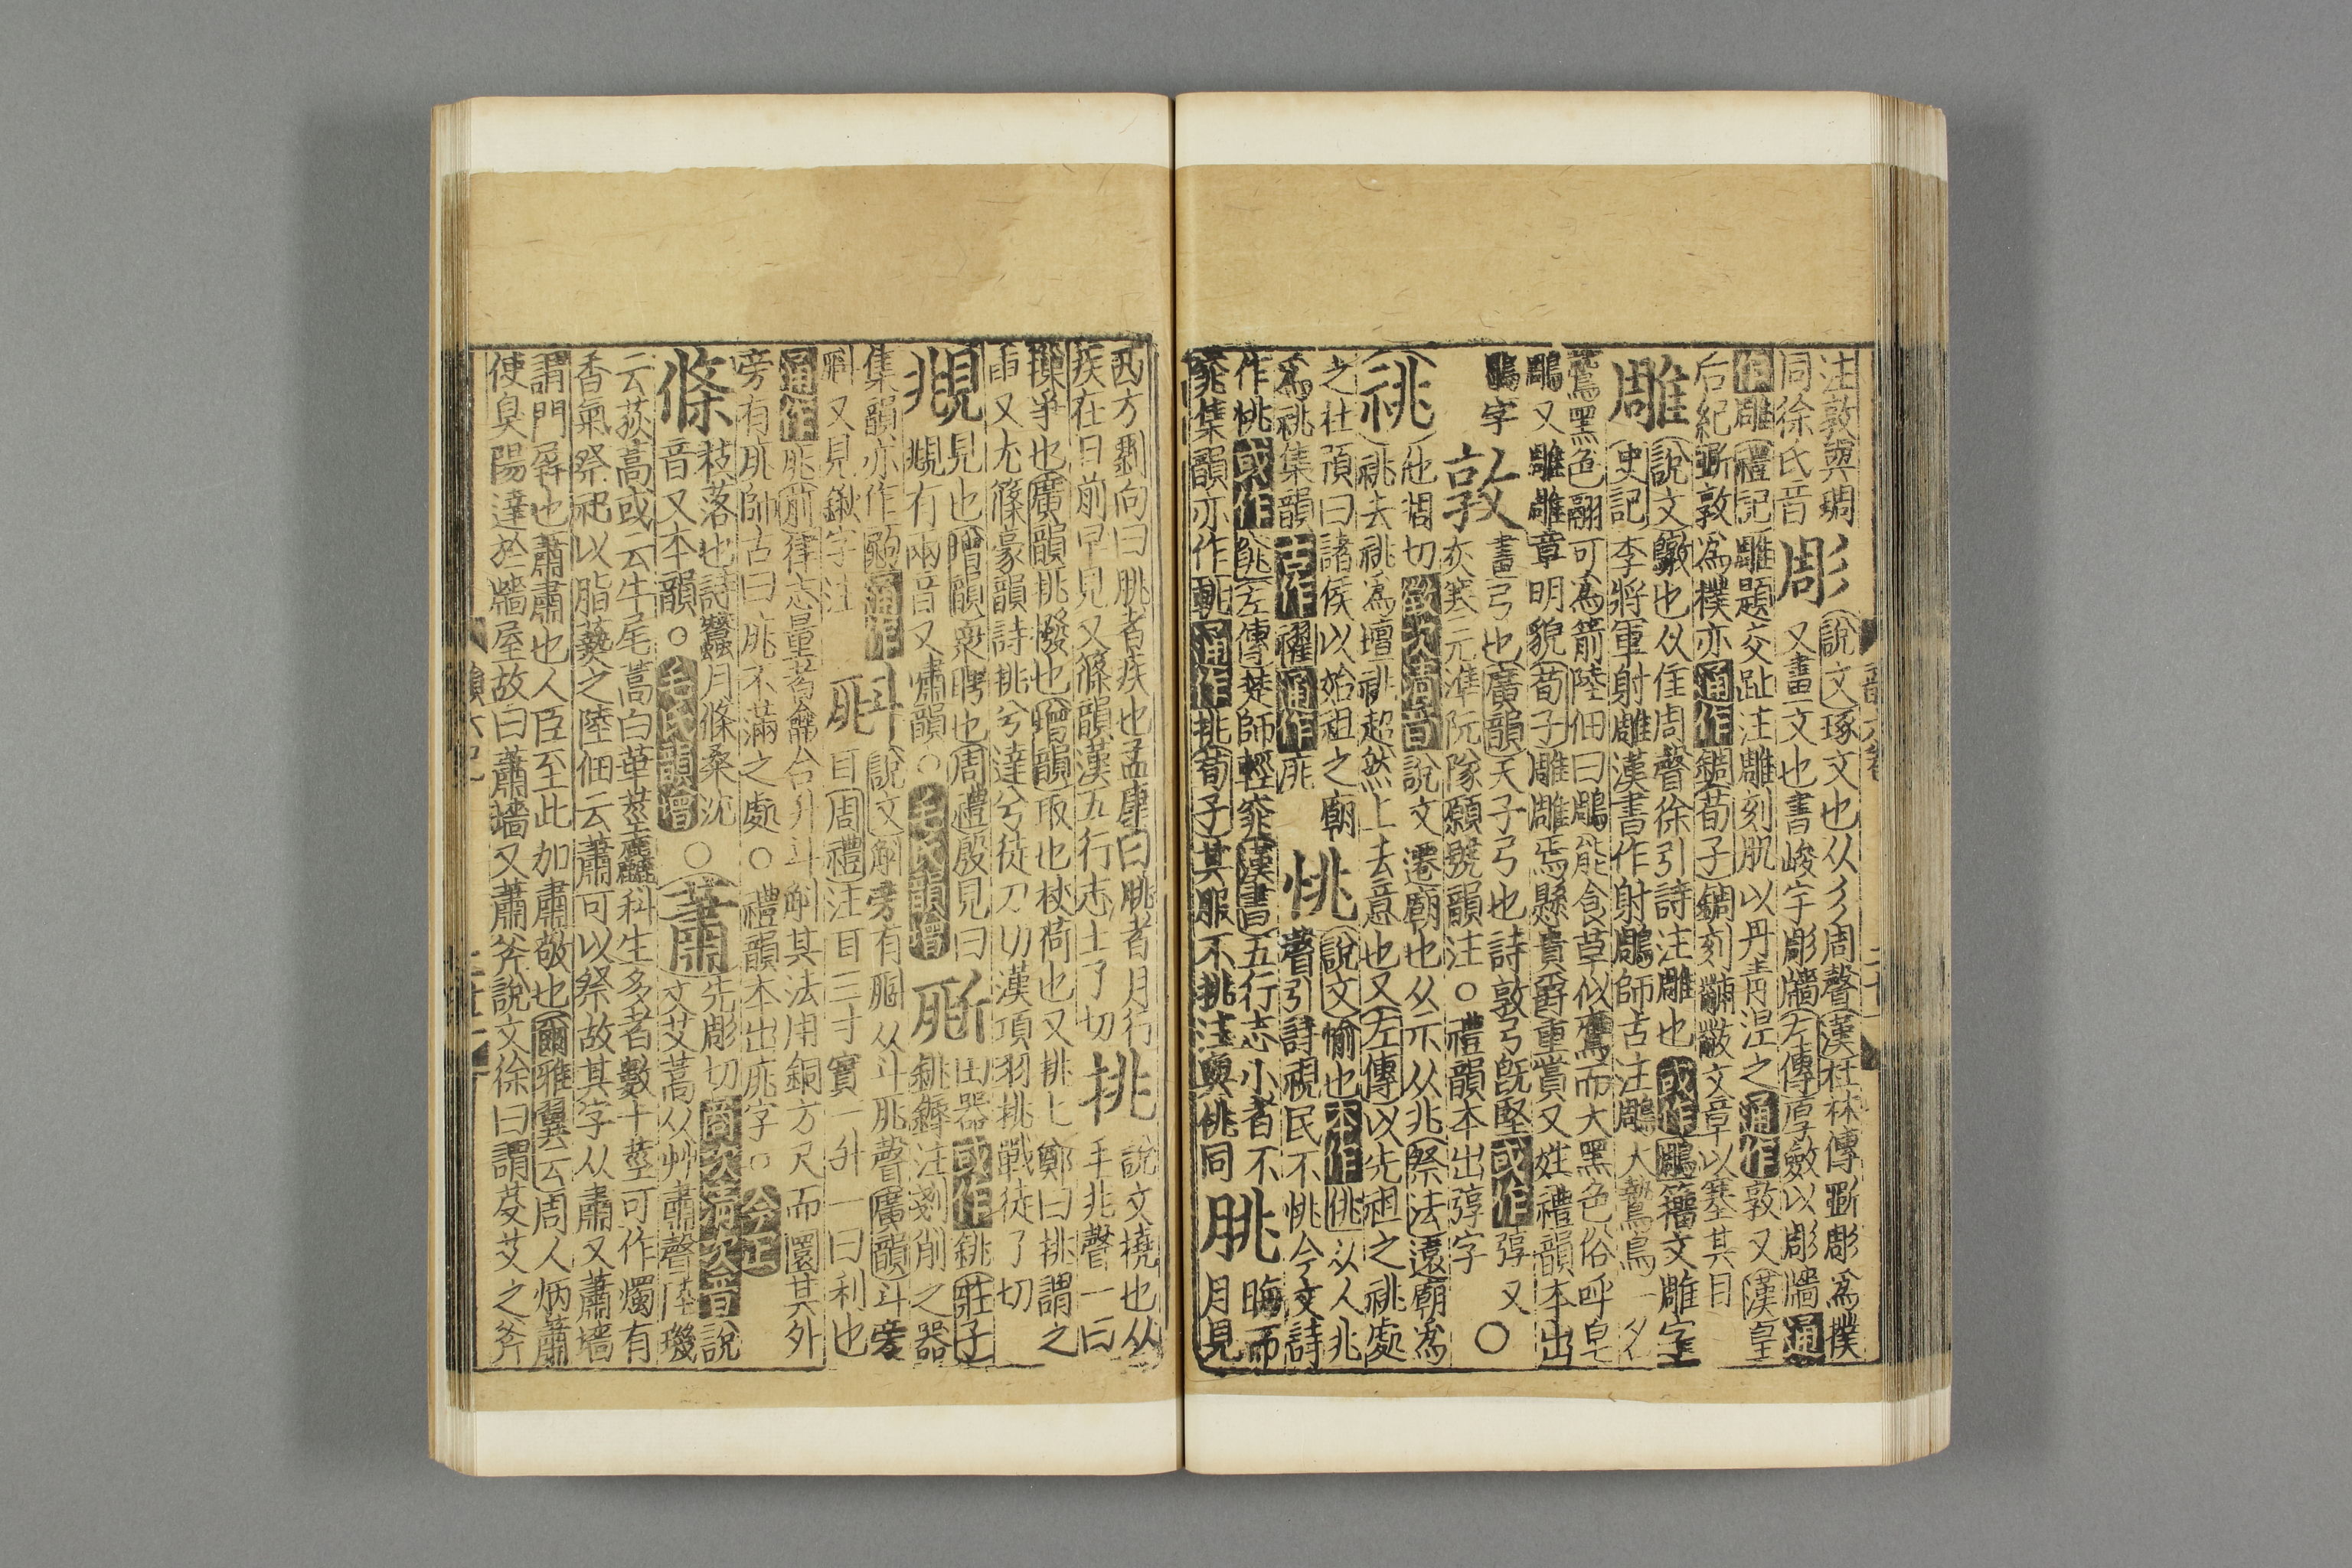 注敦與琱
同徐氏音
彫
說文琢文也从彡周聲漢杜林傳斲彫爲樸
又畫文也書峻宇彫牆左傳厚斂以彫牆通
作雕禮記雕題交趾注雕刻肌以丹青涅之通作敦又漢皇
后紀斲敦爲樸亦通作錭荀子錭刻黼黻文章以塞其目
雕
說文鷻也从隹周聲徐引詩注雕也或作鵰籀文雕字
史記李將軍射雕漢書作射鵰師古注鵰大鷙鳥一名
鷲黑色翮可爲箭陸佃曰鵰能食草似鷹而大黑色俗呼皂
鵰又雕雕章明貌荀子雕雕焉懸貴爵重賞又姓禮韻本出
鵰字
敦
畫弓也廣韻天子弓也詩敦弓旣堅或作弴又
灰寒元準阮隊願號韻注○禮韻本出弴字
○
祧
他彫切徵次清音說文遷廟也从示从兆祭法遠廟爲
祧去祧爲壇祧超然上去意也又左傳以先君之祧處
之杜預曰諸侯以始祖之廟
爲祧集韻古作濯通作庣
恌
說文愉也本作佻从人兆
聲引詩視民不恌今文詩
作恌或作佻左傳楚師輕窕漢書五行志小者不
窕集韻亦作𨌩通作挑荀子其服不挑注與佻同
朓
晦而
月見
西方劉向曰朓者疾也孟康曰朓者月行
疾在日前早見又篠韻漢五行志土了切
挑
說文橈也从
手兆聲一曰
摷爭也廣韻挑撥也增韻取也杖荷也又挑上鄭曰挑謂之
臿又尤篠豪韻詩挑兮達兮徒刀切漢項羽挑戰徒了切
覜
見也增韻衆聘也周禮殷見曰
覜有兩音又嘯韻○毛氏韻增
𣂁
田器或作銚莊子
銚鎒注剗削之器
集韻亦作㔯通作
斛又見鍬字注
斗
說文斛旁有𣂁从斗庣聲廣韻斗旁
庣
耳周禮注耳三寸實一升一曰利也
通作庣前律志量者龠合升斗斛其法用銅方尺而圜其外
旁有庣師古曰庣不滿之處○禮韻本出庣字○今正
條
枝落也詩蠶月條桑沈
音又本韻○毛氏韻增
○
蕭
先彫切商次清次音說
文艾蒿从艸肅聲陸璣
云荻蒿或云牛尾蒿白華莖麤科生多者數十莖可作燭有
香氣祭祀以脂爇之陸佃云蕭可以祭故其字从肅又蕭墻
謂門屏也蕭肅也人臣至此加肅敬也爾雅翼云周人炳蕭
使臭陽達於牆屋故曰蕭墻又蕭斧說文徐曰謂芟艾之斧